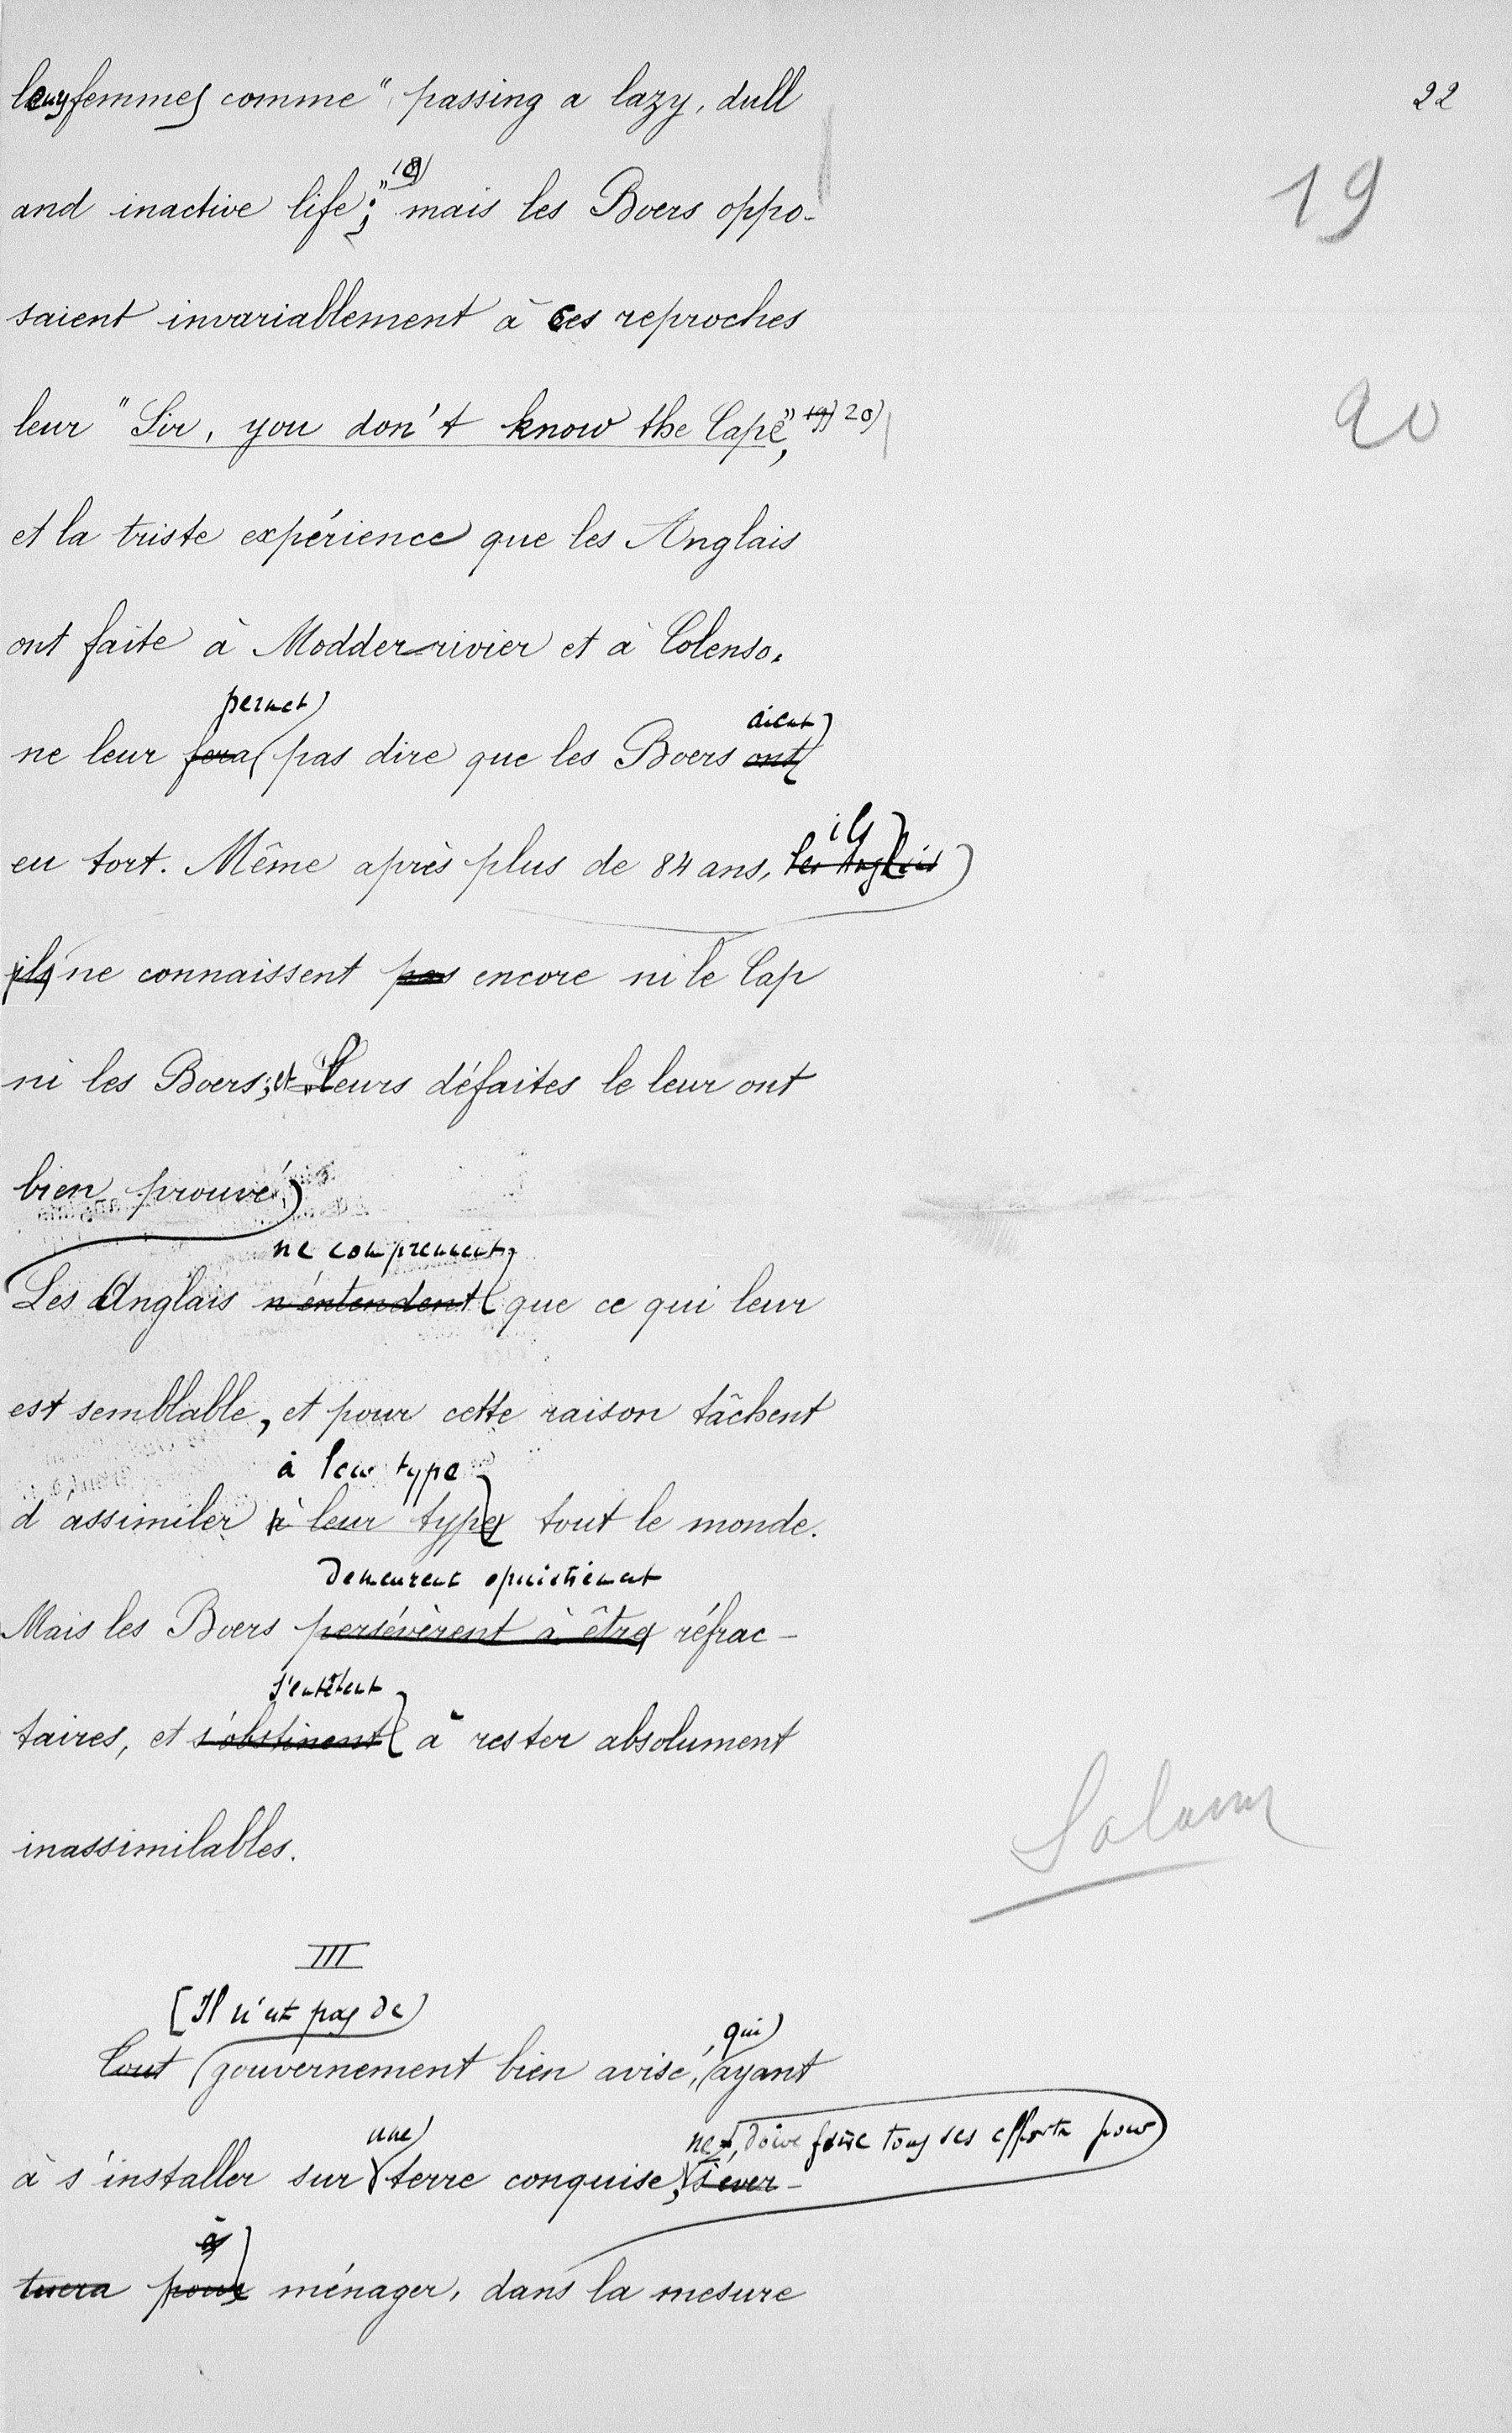 22
leurs femmes comme "passing a lazy, dull
19
and inactive life;" mais les Boers oppo-
saient invariablement à ces reproches
20
leur "Sir, you don't know the Cape", 19) 20)
et la triste expérience que les Anglais
ont faite à Modder-rivier et à Colenso.
permet aient
ne leur fera pas dire que les Boers ont
ils
eu tort. Même après plus de 84 ans, les Anglais
ils ne connaissent pas encore ni le Cap
ni les Boers; et leurs défaites le leur ont
bien prouvé
ne comprennent
Les Anglais n'entendent que ce qui leur
est semblable, et pour cette raison tâchent
à leur type
d'assimiler à leur type tout le monde.
demeurent opiniâtrement
Mais les Boers persévèrent à être réfrac-
s'entêtent
taires, et s'obstinent à rester absolument
inassimilables.
III
[Il n'est pas de
qui
Tout gouvernement bien avisé, ayant
une ne doive faire tous ses efforts pour
à s'installer sur terre conquise, s'ever-
à
tuera pour ménager, dans la mesure